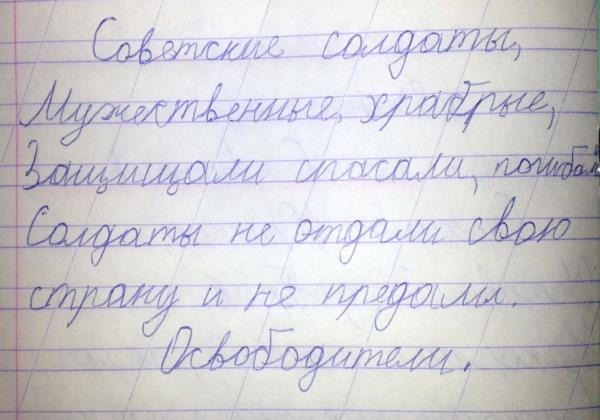 Советские солдаты,
Мужественные, храбрые,
Защищали спасали, погибали
Солдаты не отдали свою
страну и не предали.
Освободители.